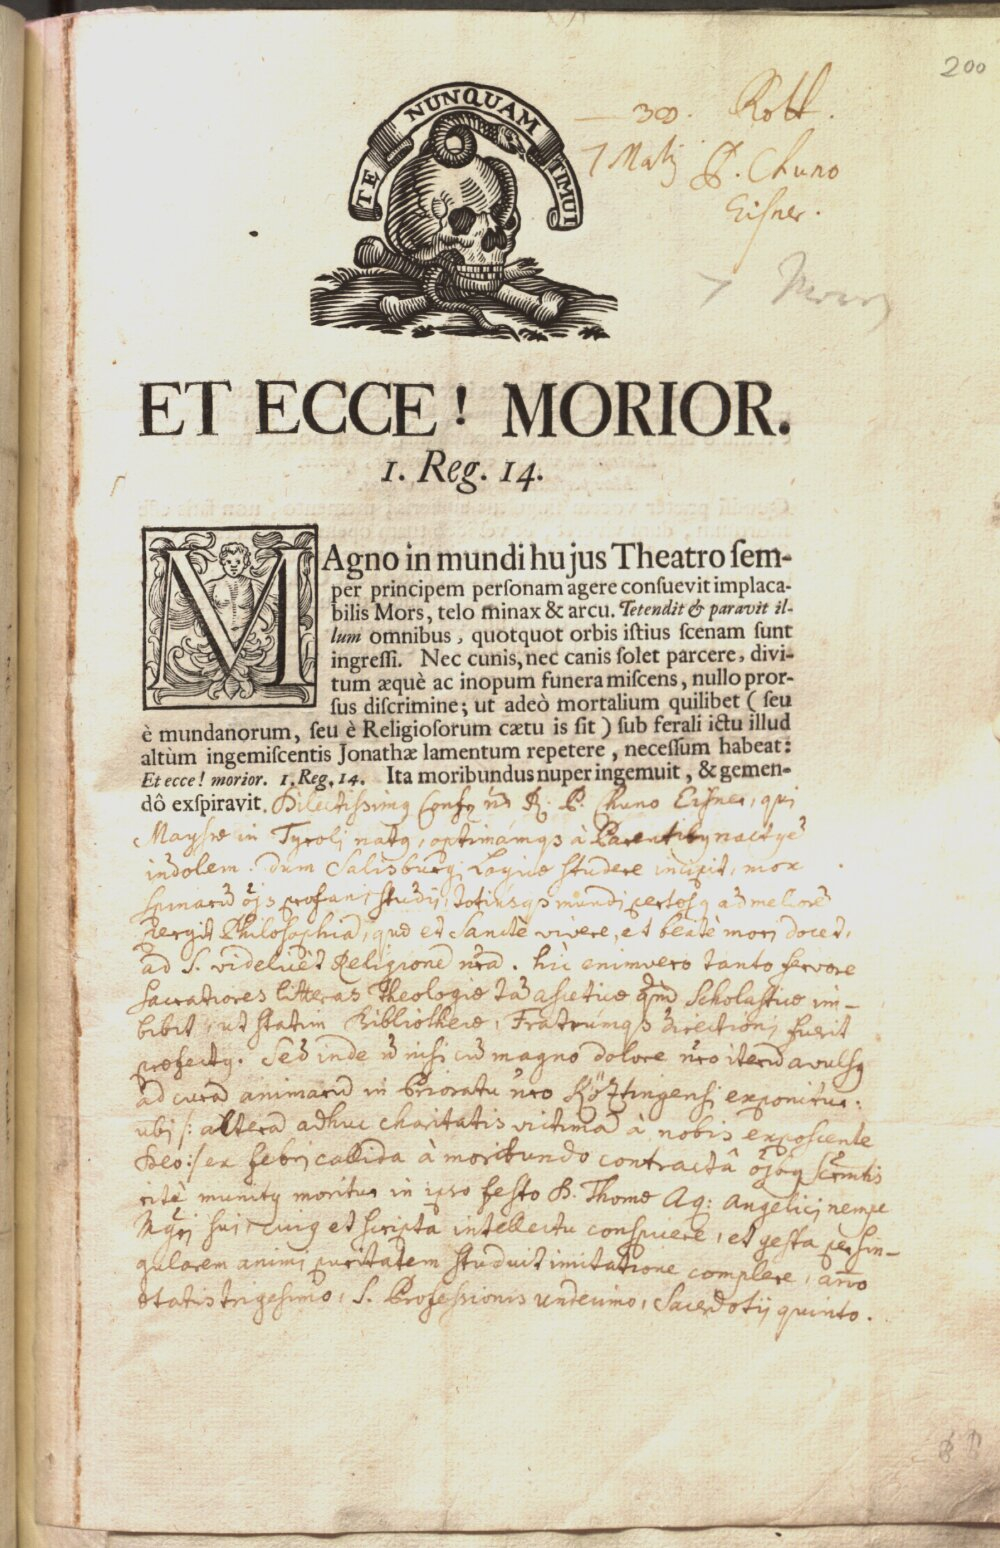 200
TE NUNQUAM TIMUI
300. Rott.
7 Martij P. Chuno
Eisner.
ET ECCE! MORIOR.
1. Reg. 14.
MAgno in mundi hujus Theatro ſem-
per principem perſonam agere conſuevit implaca-
bilis Mors, telo minax & arcu. Tetendit & paravit il-
lum omnibus, quotquot orbis iſtius ſcenam ſunt
ingreſſi. Nec cunis, nec canis ſolet parcere, divi-
tum æquè ac inopum funera miſcens, nullo pror-
ſus diſcrimine; ut adeò mortalium quilibet (ſeu
è mundanorum, ſeu è Religioſorum cætu is ſit) ſub ferali ictu illud
altùm ingemiſcentis Jonathæ lamentum repetere, neceſſum habeat:
Et ecce! morior. 1. Reg. 14. Ita moribundus nuper ingemuit, & gemen-
dô exſpiravit. Dilectissimq R. P. Chuno Eisner, qui
in Tyroli natq, optimamqs à Parentibq nactqe
indolem. dum Salisburgi Logicæ studere incipit, mox
profani studij, totiusqs mundi pertesq ad meliorē
pergit Philosophiā, quæ et Sanctè vivere, et beatè mori docet,
ad S. videlicèt Religionē nr̄a. hic enimvero tanto fervore
sacratiores litteras Theologiæ tā asceticæ qm̄ Scholasticæ im-
bibit, ut statim Bibliothecæ, Fratrumqs directioni fuerit
præfectq. Sed inde n̄ nisi cū magno dolore nr̄o iterū avulsq
ad curā animarū in Prioratu nr̄o Köztingensi exponitur:
ubi /: alterā adhuc charitatis victimā à nobis exposcente
Deo:/ ex febri callida à moribundo contractâ
ritè munitq moritur in ipso festo D. Thomæ Aq: Angelici nempe
sui, cuiq et scripta intellectu conspicere, et gesta per sin-
gularem animi puritatem studuit imitatione complere, año
ætatis trigesimo, S. Professionis undecimo, Sacerdotij quinto.